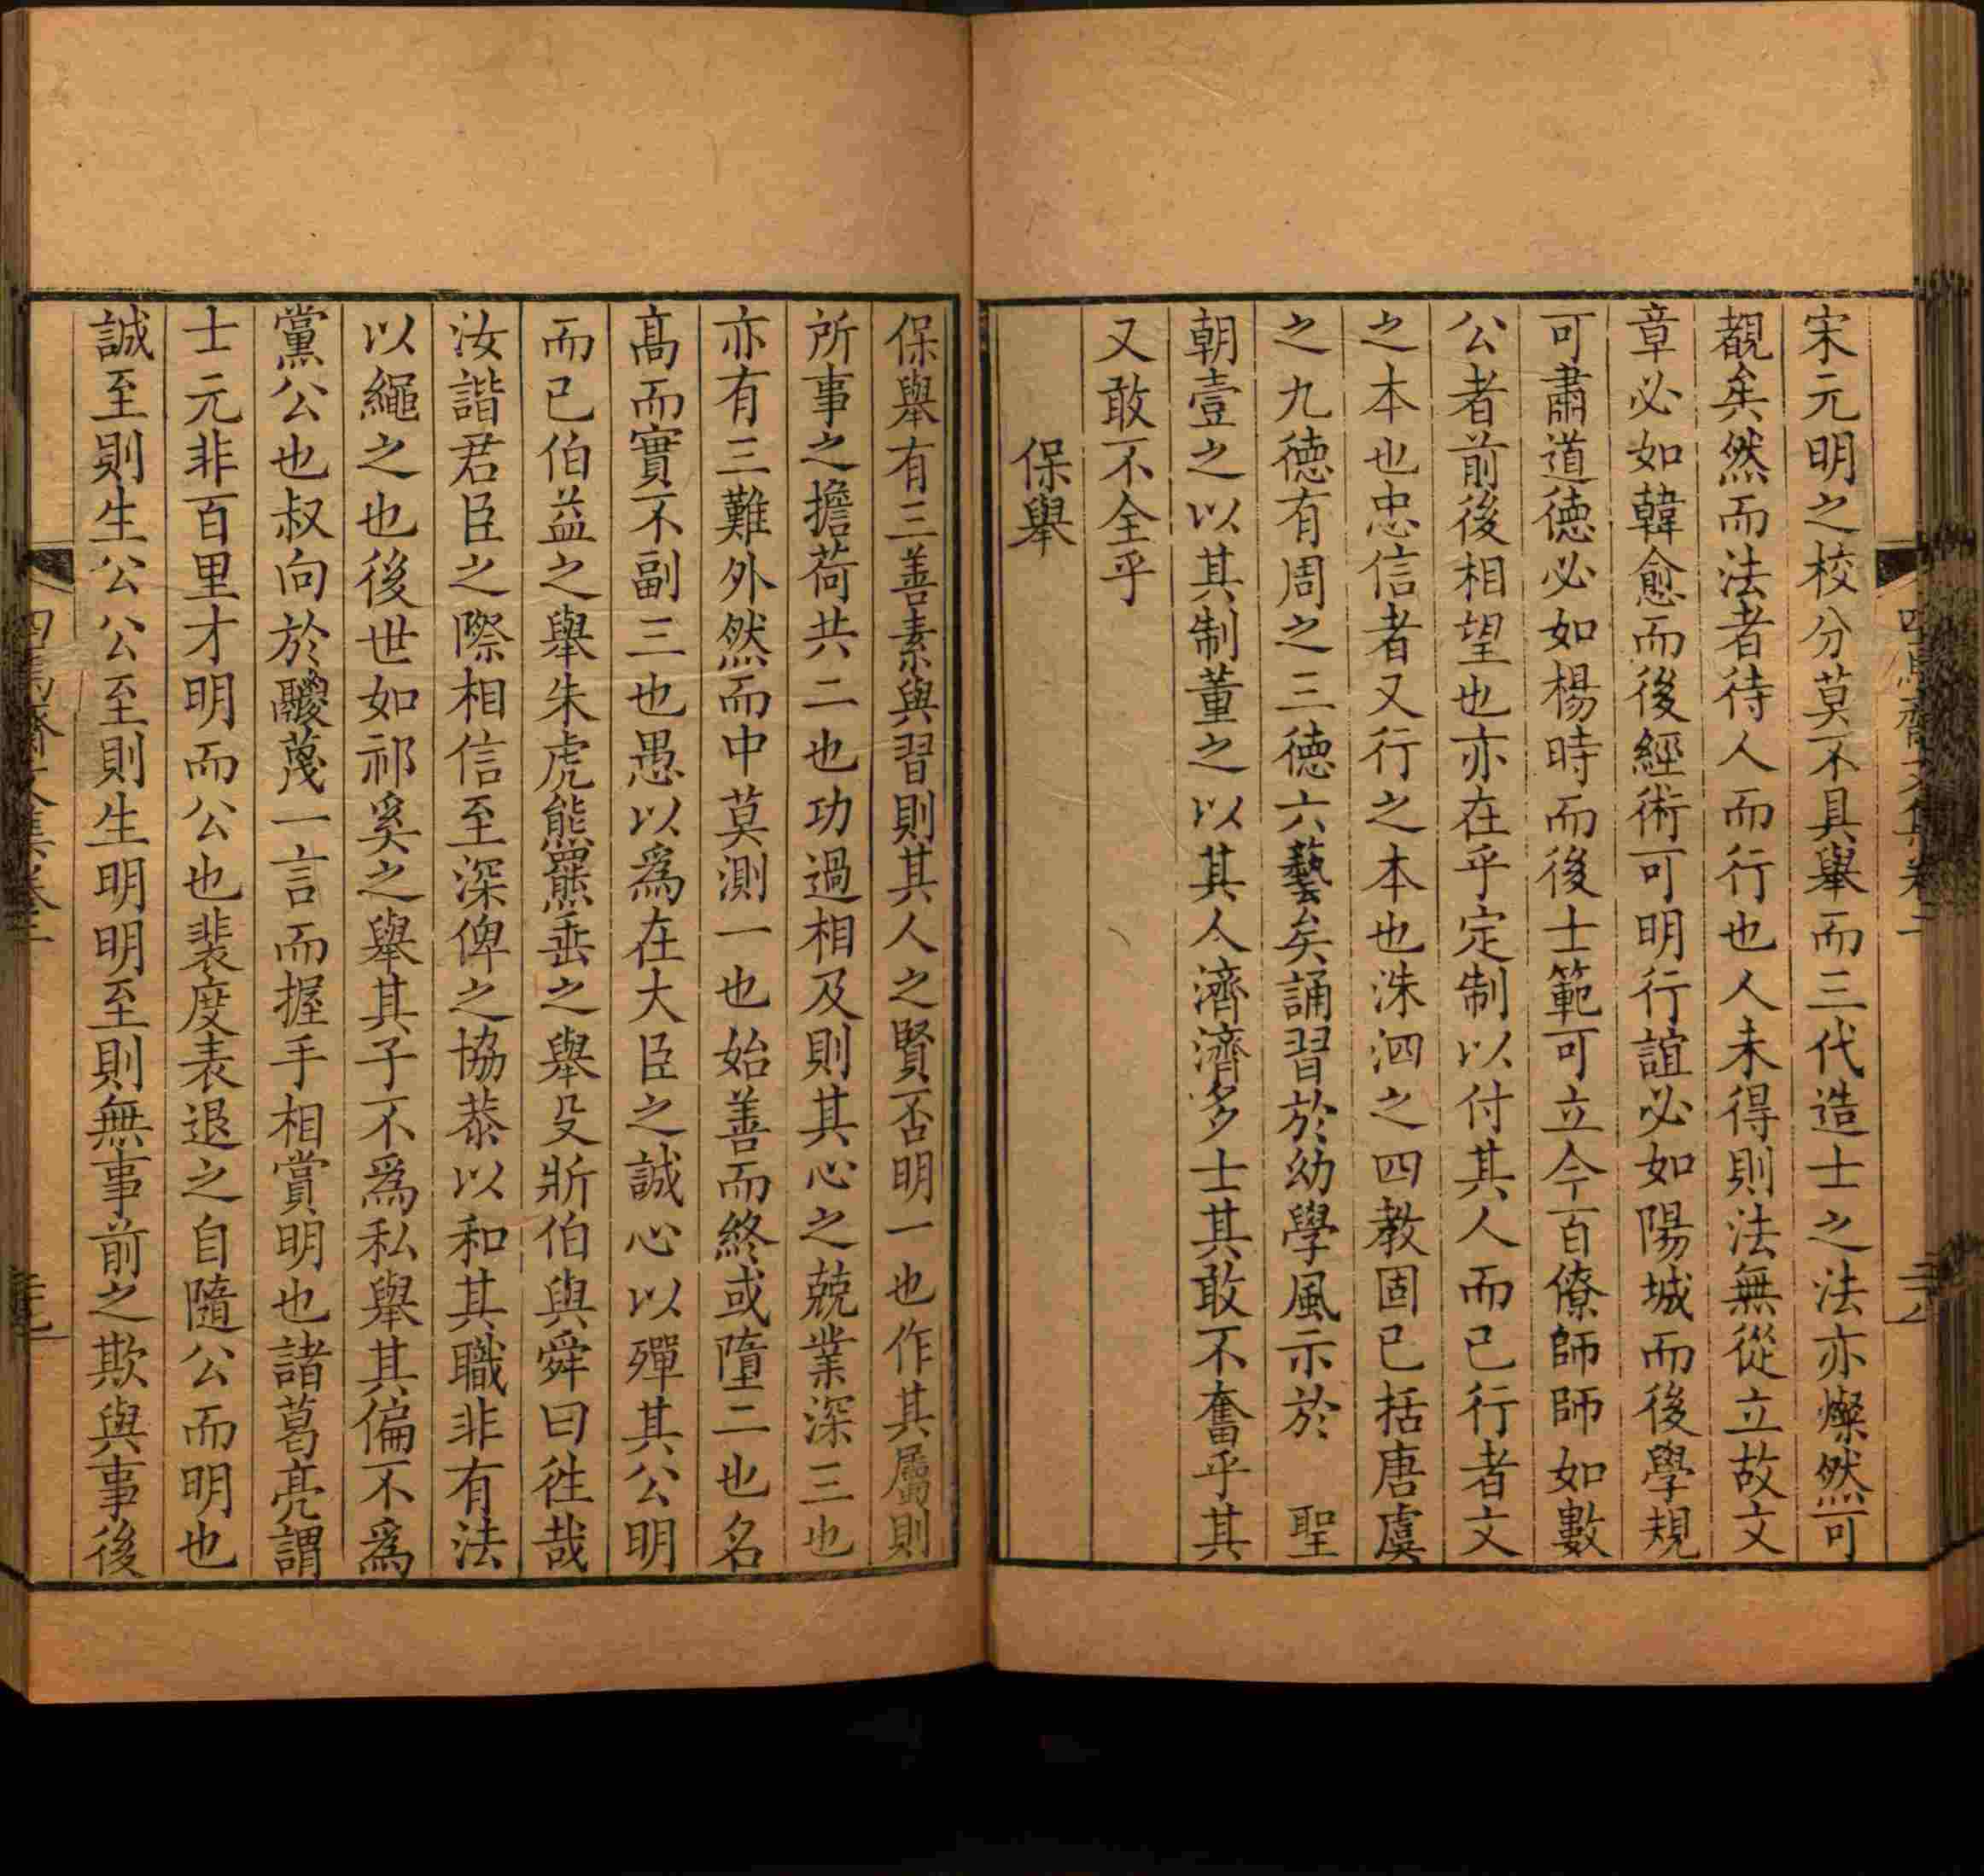 宋元明之校分莫不具舉而三代造士之法亦燦然可
覩矣然而法者待人而行也人未得則法無從立故文
章必如韓愈而後經術可明行誼必如陽城而後學規
可肅道德必如楊時而後士範可立今百僚師師如數
公者前後相望也亦在乎定制以付其人而已行者文
之本也忠信者又行之本也洙泗之四教固已括唐虞
之九德有周之三德六藝矣誦習於幼學風示於 聖
朝壹之以其制董之以其人濟濟多士其敢不奮乎其
又敢不全乎
保舉
保舉有三善素與習則其人之賢否明一也作其屬則
所事之擔荷共二也功過相及則其心之兢業深三也
亦有三難外然而中莫測一也始善而終或墮二也名
高而實不副三也愚以爲在大臣之誠心以殫其公明
而已伯益之舉朱虎熊羆垂之舉殳斨伯與舜曰往哉
汝諧君臣之際相信至深俾之協恭以和其職非有法
以繩之也後世如祁奚之舉其子不爲私舉其偏不爲
黨公也叔向於鬷蔑一言而握手相賞明也諸葛亮謂
士元非百里才明而公也裴度表退之自隨公而明也
誠至則生公公至則生明明至則無事前之欺與事後